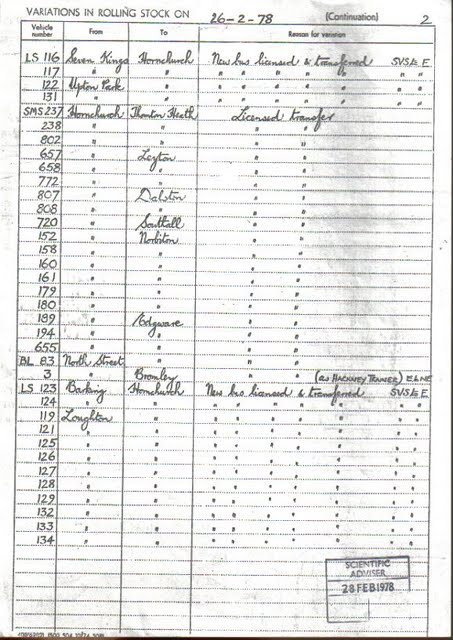 VARIATIONS IN ROLLING STOCK ON 26-2-78 (Continuation) 2
Vehicle number From To Reason for variation
LS 116 Seven Kings Hornchurch New bus licensed & transferred SVS& E
117 " " " " " " " " "
122 Upton Park " " " " " " " "
131 " " " " " " " " "
SMS 237 Hornchurch Thornton Heath Licensed transfer
238 " " " "
802 " " " "
657 " Leyton " "
658 " " " "
772 " " " "
807 " Dalston " "
808 " " " "
720 " Southall " "
152 " Norbiton " "
158 " " " "
160 " " " "
161 " " " "
179 " " " "
180 " " " "
189 " Edgware " "
194 " " " "
655 " " " "
BL 83 North Street " " "
3 " Bromley " " (as HACKNEY TRAINER) E&NE
LS 123 Barking Hornchurch New bus licensed & transferred SVS& E
124 " " " " " " " " "
119 Loughton " " " " " " " "
121 " " " " " " " " "
125 " " " " " " " " "
126 " " " " " " " " "
127 " " " " " " " " "
128 " " " " " " " " "
129 " " " " " " " " "
132 " " " " " " " " "
133 " " " " " " " " "
134 " " " " " " " " "
SCIENTIFIC
ADVISER
28 FEB 1978